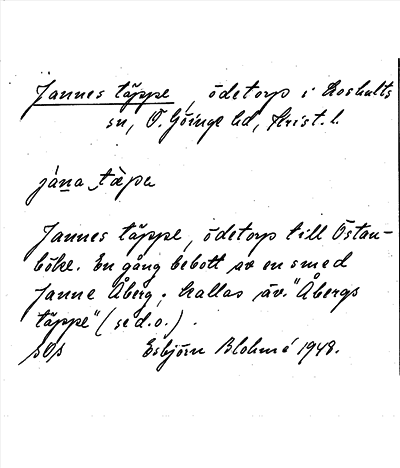 Jannes täppe, ödetorp i Loshults
sn, Ö. Göinge hd, Krist. l.
jána tàpa
Jannes täppe, ödetorp till Östan-
böke. En gång bebott av en smed
Janne Åberg; kallas äv. "Åbergs
täppe" (se d.o.).
sOs Esbjörn Blohmé 1948.